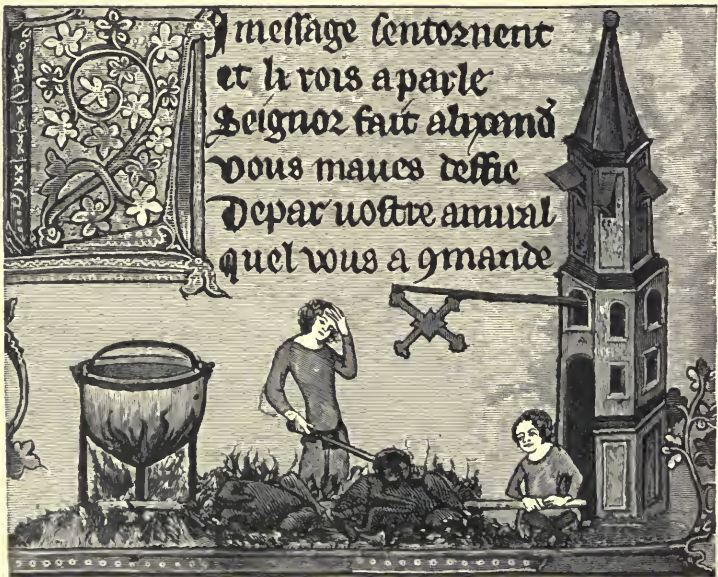 I message sentornent
et li rois a parle
Seignor fait alixand̄
Vous maues deffie
Depar uostre amiral
quel vous a ꝯmande